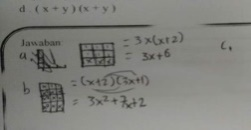 d. (x + y)(x + y)
Jawaban
a.
= 3x(x+2)
= 3x+6
b
= (x+2)(2x+1)
= 3x²+7x+2